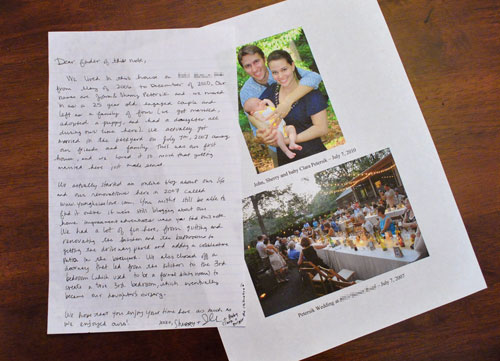 Dear finder of this note,
We lived in this house on
from May of 2006 to December of 2010. Our
names are John & Sherry Petersik and we moved
in as a 25 year old, engaged couple and
left as a family of four (we got married,
adopted a puppy, and had a daughter all
during our time here). We actually got
married in the backyard on July 7th, 2007 among
our friends and family. This was our first
house, and we loved it so much that getting
married here just made sense.
We actually started an online blog about our life
and our renovations here in 2007 called
www.younghouselove.com. You might still be able to
find it online if we're still blogging about our
home improvement adventures when you find this note.
We had a lot of fun here, from gutting and
renovating the kitchen and the bathrooms to
getting the backyard and adding a
patio in the backyard. We also closed off a
doorway that led from the kitchen to the 3rd
bedroom (which used to be a formal dining room) to
create a true 3rd bedroom, which eventually
became our daughter's nursery.
We hope that you enjoy your time here as much as
we enjoyed ours! xoxo, Sherry &
John, Sherry and baby Clara Petersik - July 5, 2010
Petersik Wedding at - July 7, 2007